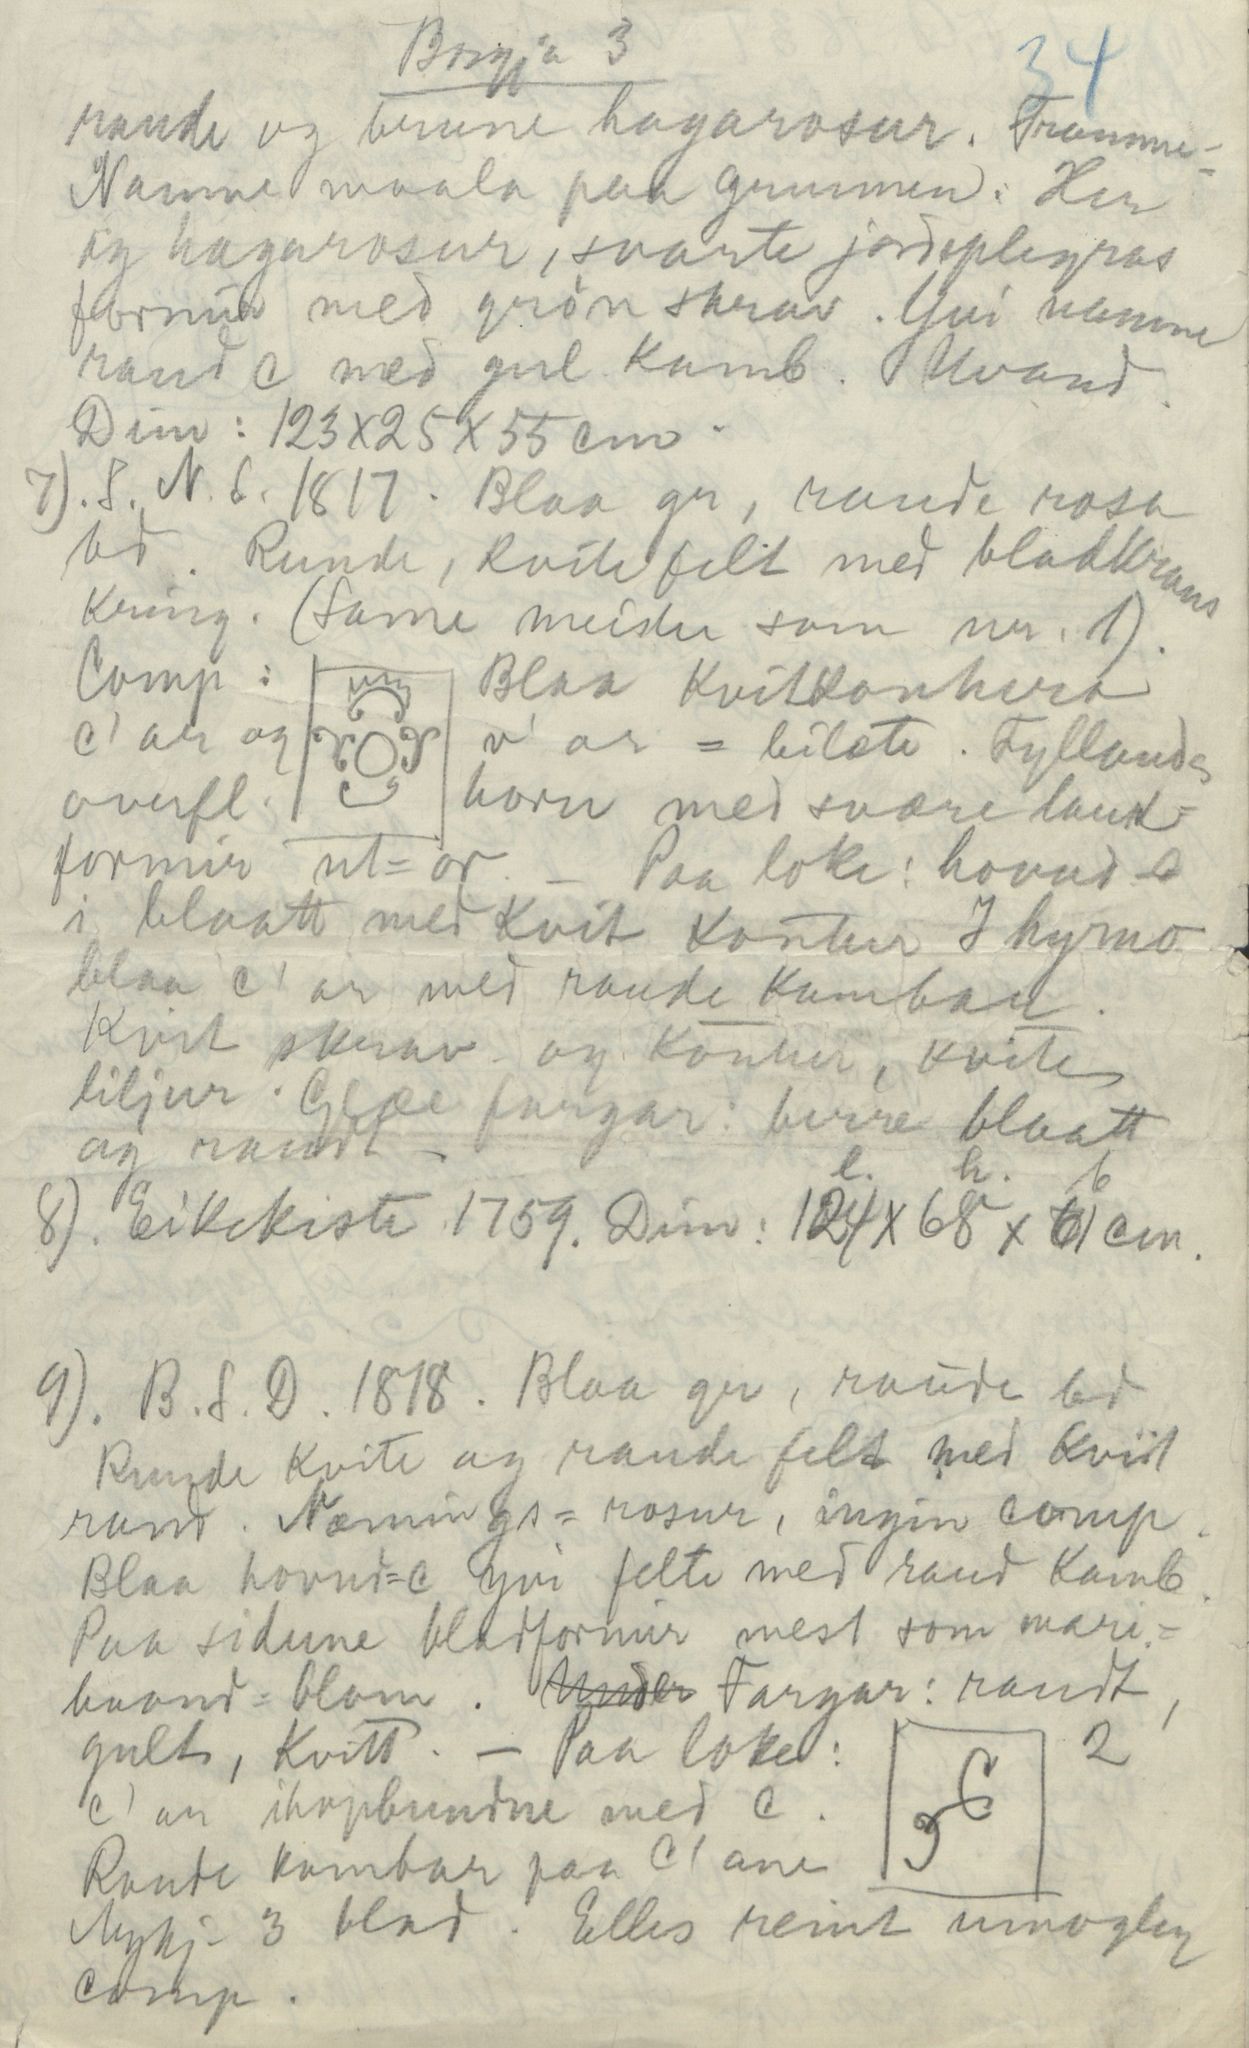 Borgja 3
34
raude og brune hagarosur. Framme-
Namne maala paa grunnen: Her
og hagarosur, svarte jordeplegras
formir med grön skrav. Yvi namne
raud C med gul kamb. Uvand.
Dim: 123x25x55 cm.
7). S. N. S. 1817. Blaa gr, raude rosa
bd. Runde, kvite felt med bladkrans
kring. (Same meister som nr. 1).
Comp: Blaa kvitkonturera
c'ar og v'ar = bilæte. Fyllande
overfl. horn med svære lauk=
formir ut=or. — Paa loke: hovud-c
i blaatt med kvit kontur I hyrno
blaa c'ar med raude kambar.
Kvit skrav og kontur, kvite
liljur. Glæe fargar: berre blaatt
og raudt —
l. h. b
8). Eikekiste 1759. Dim: 124x68x61 cm.
9). B. S. D. 1818. Blaa gr, raude bd
Runde kvite og raude felt med kvit
rand. Næmings=rosur, ingin comp.
Blaa hovud=c yvi felte med raud kamb.
Paa sidune bladformir mest som mari=
haand=blom. Under Fargar: raudt,
gult, kvitt. — Paa loke: 2
c'ar ihopbundne med c.
Raude kambar paa C'ane
Mykje 3 blad. Elles reint umogleg
comp.